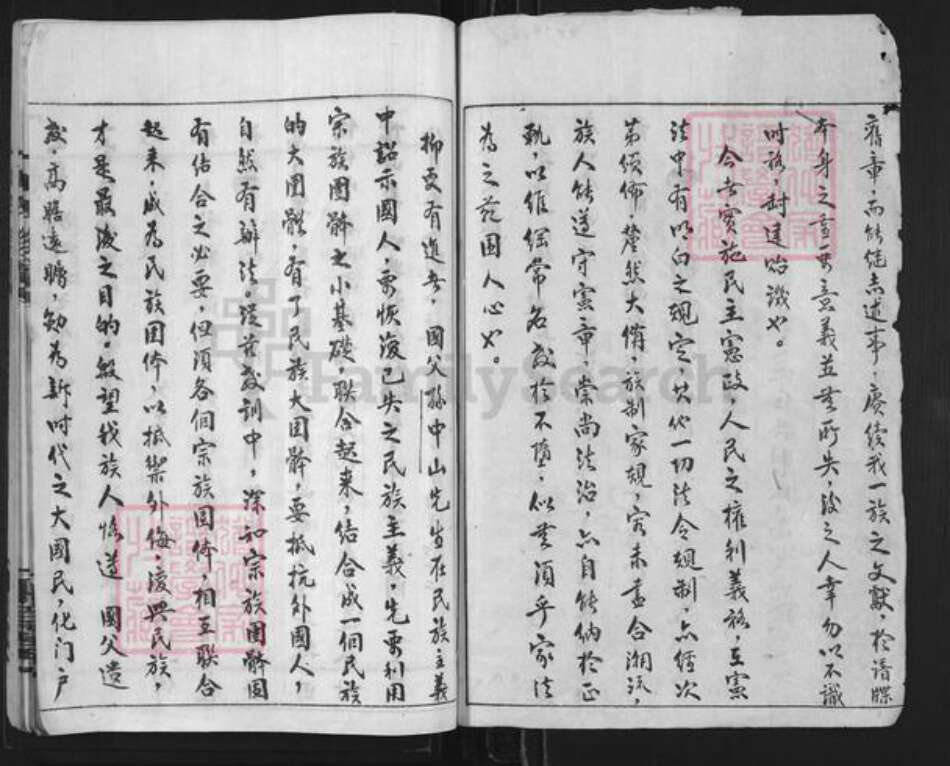 舊章,而能繼志述事,賡續我一族之文獻,於譜牒
本身之重要意義並無所失,後之人幸勿以不識
時務,封建貽譏也。
今世實施民主憲政,人民之權利義務,在憲
法中有明白之規定,其他一切法令規制,亦經次
第頒佈,釐然大備,族制家規,容未盡合潮流,
族人能遵守憲章,崇尚法治,亦自能納於正
軌,以維綱常名教於不墮,似無須乎家法
為之范圍人心也。
抑更有進者,國父孫中山先生在民族主義
中詔示國人,要恢復已失之民族主義,先要利用
宗族團體之小基礎,聯合起來,結合成一個民族
的大團體,有了民族大團體,要抵抗外國人,
自然有辦法。從茲教訓中,深知宗族團體固
有結合之必要,但須各個宗族團体,相互聯合
起來,成為民族團体,以抵禦外侮,復興民族,
才是最後之目的。敬望我族人恪遵 國父遺
教,高瞻遠矚,勉為新時代之大國民,化门户
FamilySearch